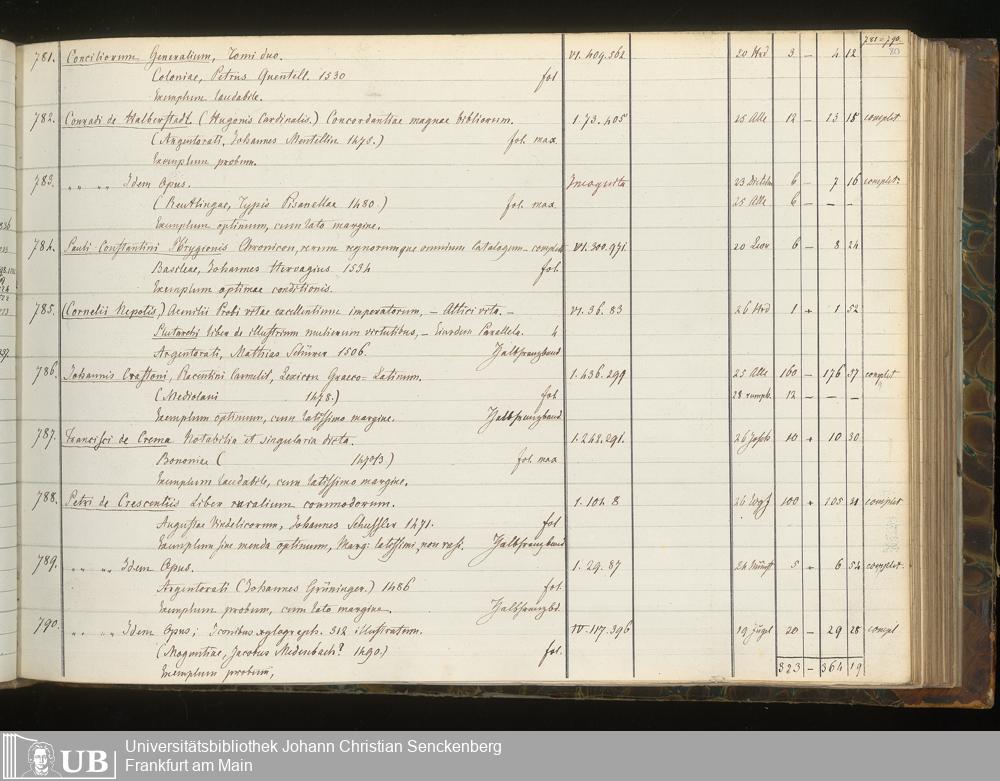 781–790.
80
781. Conciliorum Generalium, Tomi duo. VI. 409. 562 20 Hrd 3 – 4 12
Coloniae, Petrus Quentell. 1530 fol
Exemplum laudabile.
782. Conradi de Halberstadt. (Hugonis Cardinalis.) Concordantiae magnae bibliorum. 1. 73. 405 25 Alle 12 – 13 15 complet
(Argentorati, Johannes Mentellin 1475.) fol. max.
Exemplum probum.
783. „ „ „ „ Idem Opus. Incognita 23 6 – 7 16 complet.
(Reutlingae, Typis Pisanellae 1480.) fol. max 25 Alle 6 – – –
Exemplum optimum, cum lato margine.
784. Pauli Constantini Phrygionis Chronicon, rerum regnorumque omnium catalogum complet VI. 300. 971 20 Leov 6 – 8 24
Basileae, Johannes Hervagius 1534 fol.
Exemplum optimae conditionis.
785. (Cornelii Nepotis) Aemilii Probi vitae excellentium imperatorum, – Attici vita. – VI. 36. 83 26 Hrd 1 + 1 52
Plutarchi liber de illustrium mulierum virtutibus, – Eiusdem Parallela. 4
Argentorati, Mathias Schürer 1506. Halbfranzband
786. Johannis Crastoni, Placentini Carmelit, Lexicon Graeco-Latinum. 1. 436. 299 25 Alle 160 – 176 57 complet
(Mediolani 1478.) fol. 28 12 – – –
Exemplum optimum, cum latissimo margine. Halbfranzband
787. Francisci de Crema Notabilia et singularia dicta. 1. 242. 291. 26 Josph 10 + 10 30
Bononiae ( ) fol. max
Exemplum laudabile, cum latissimo margine.
788. Petri de Crescentiis Liber ruralium commodorum. 1. 102. 8 100 + 105 complet
Augustae Vindelicorum, Johannes Schussler 1471. fol
Exemplum sine menda optimum, Marg: latissimi, non rasi. Halbfranzband
789. „ „ „ „ Idem Opus. 1. 29. 87 5 + 6 54 complet.
Argentorati (Johannes Grüninger.) 1486 fol.
Exemplum probum, cum lato margine. Halbfranzbd.
790. „ „ „ „ Idem Opus; Iconibus xylograph. 312 illustratum. IV. 117. 396 19 Jügel 20 – 29 28 compl
(Moguntiae, Jacobus Medenbach? 1490.) fol.
Exemplum probum,
323 – 364 19
UB
Universitätsbibliothek Johann Christian Senckenberg
Frankfurt am Main